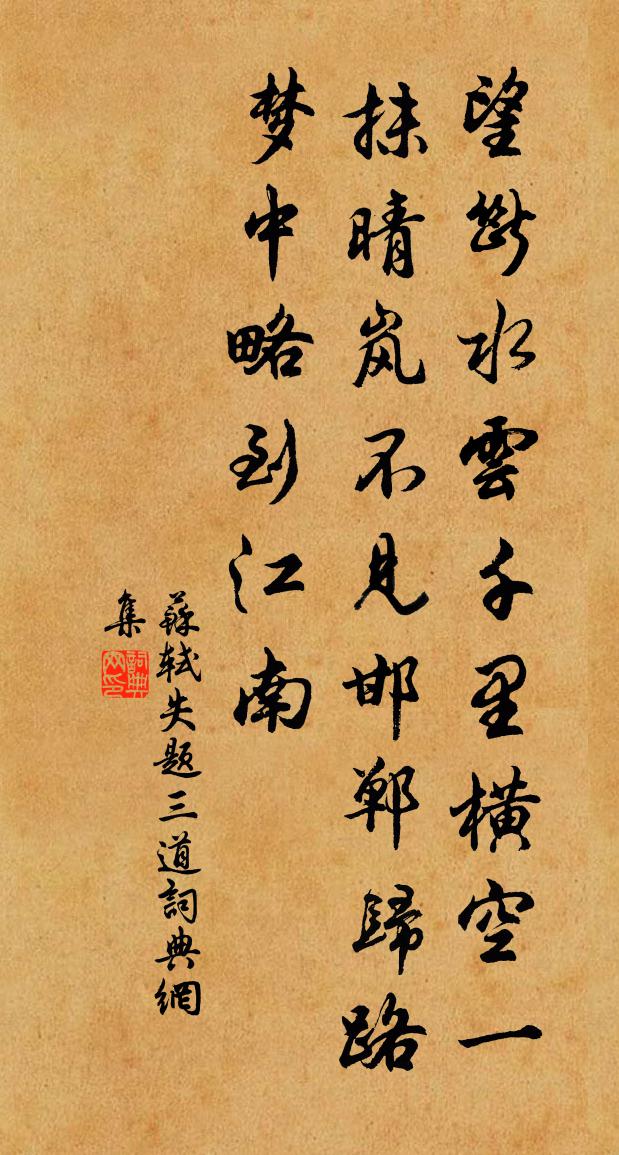 望断水雲千里橫空一
抹晴岚不見邯鄲歸路
梦中略到江南
蘇軾失题三道詞典網
集
詞典網印